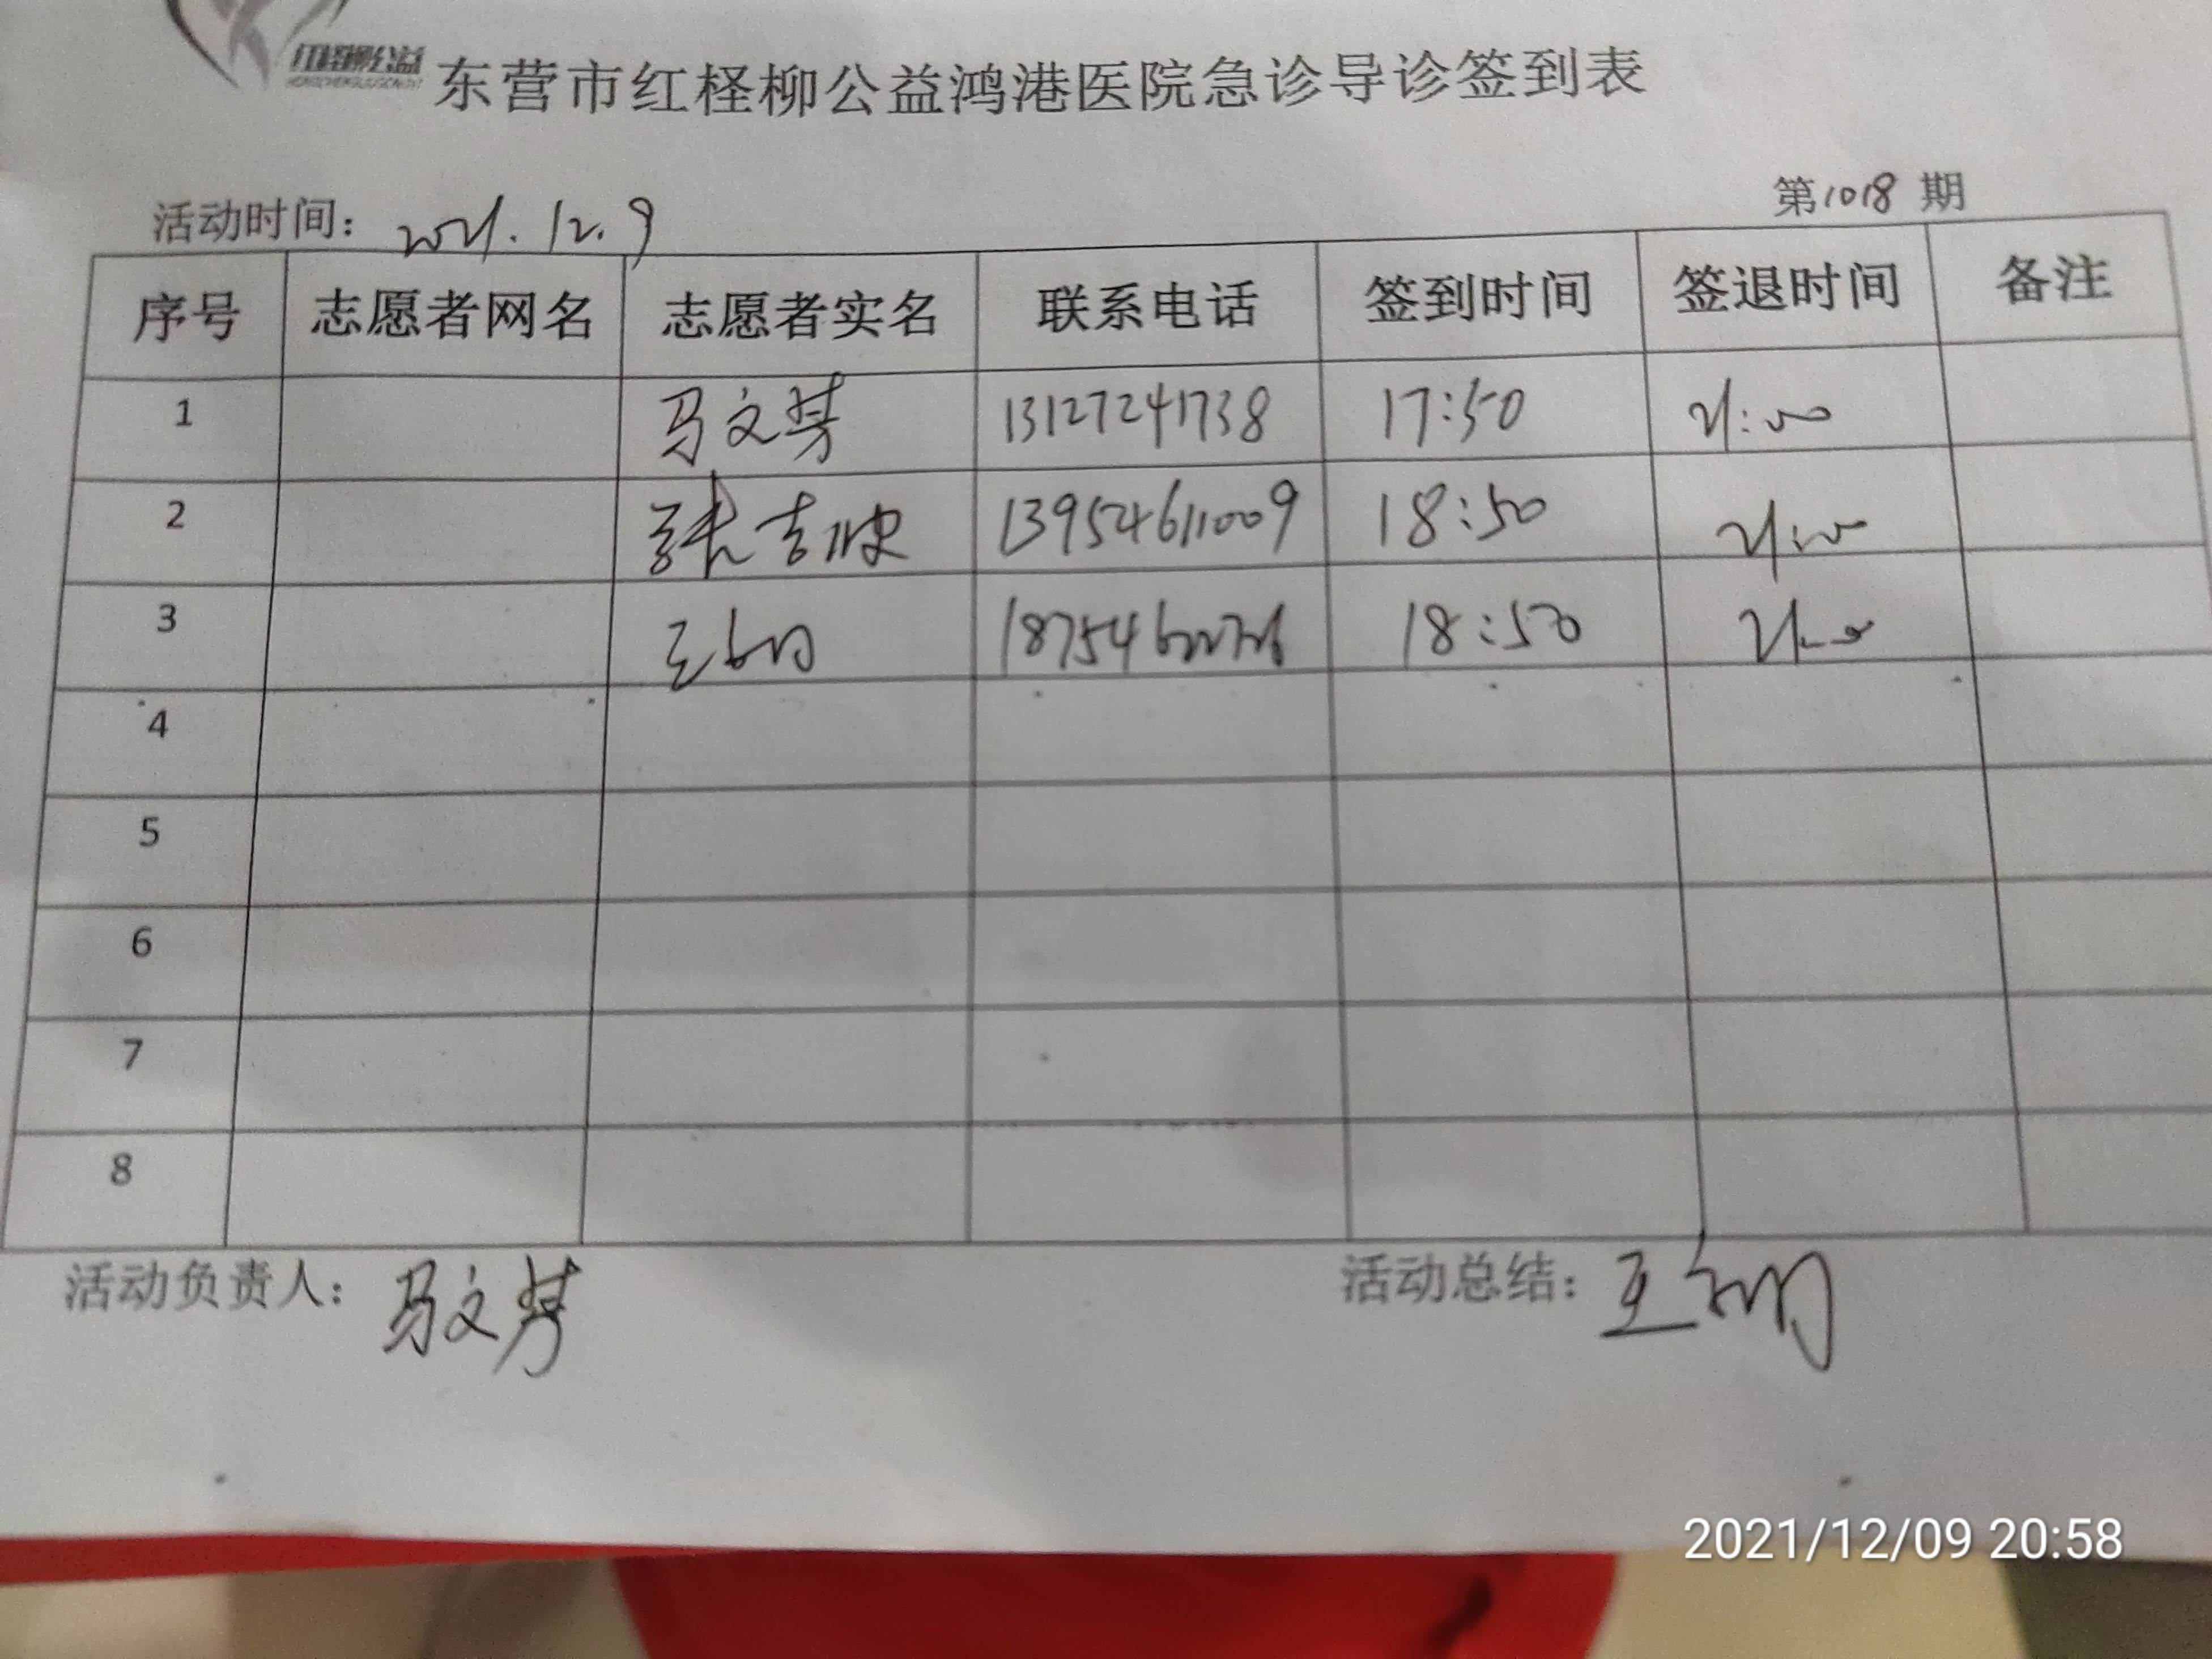 红柽柳公益
东营市红柽柳公益鸿港医院急诊导诊签到表
活动时间： 2021.12.9 第1018期
序号 志愿者网名 志愿者实名 联系电话 签到时间 签退时间 备注
1 马文琴 13127241738 17:50 21:00
2 张吉 13954611009 18:50 21:00
3 王 18:50 21:00
4
5
6
7
8
活动负责人： 马文琴 活动总结： 王
2021/12/09 20:58